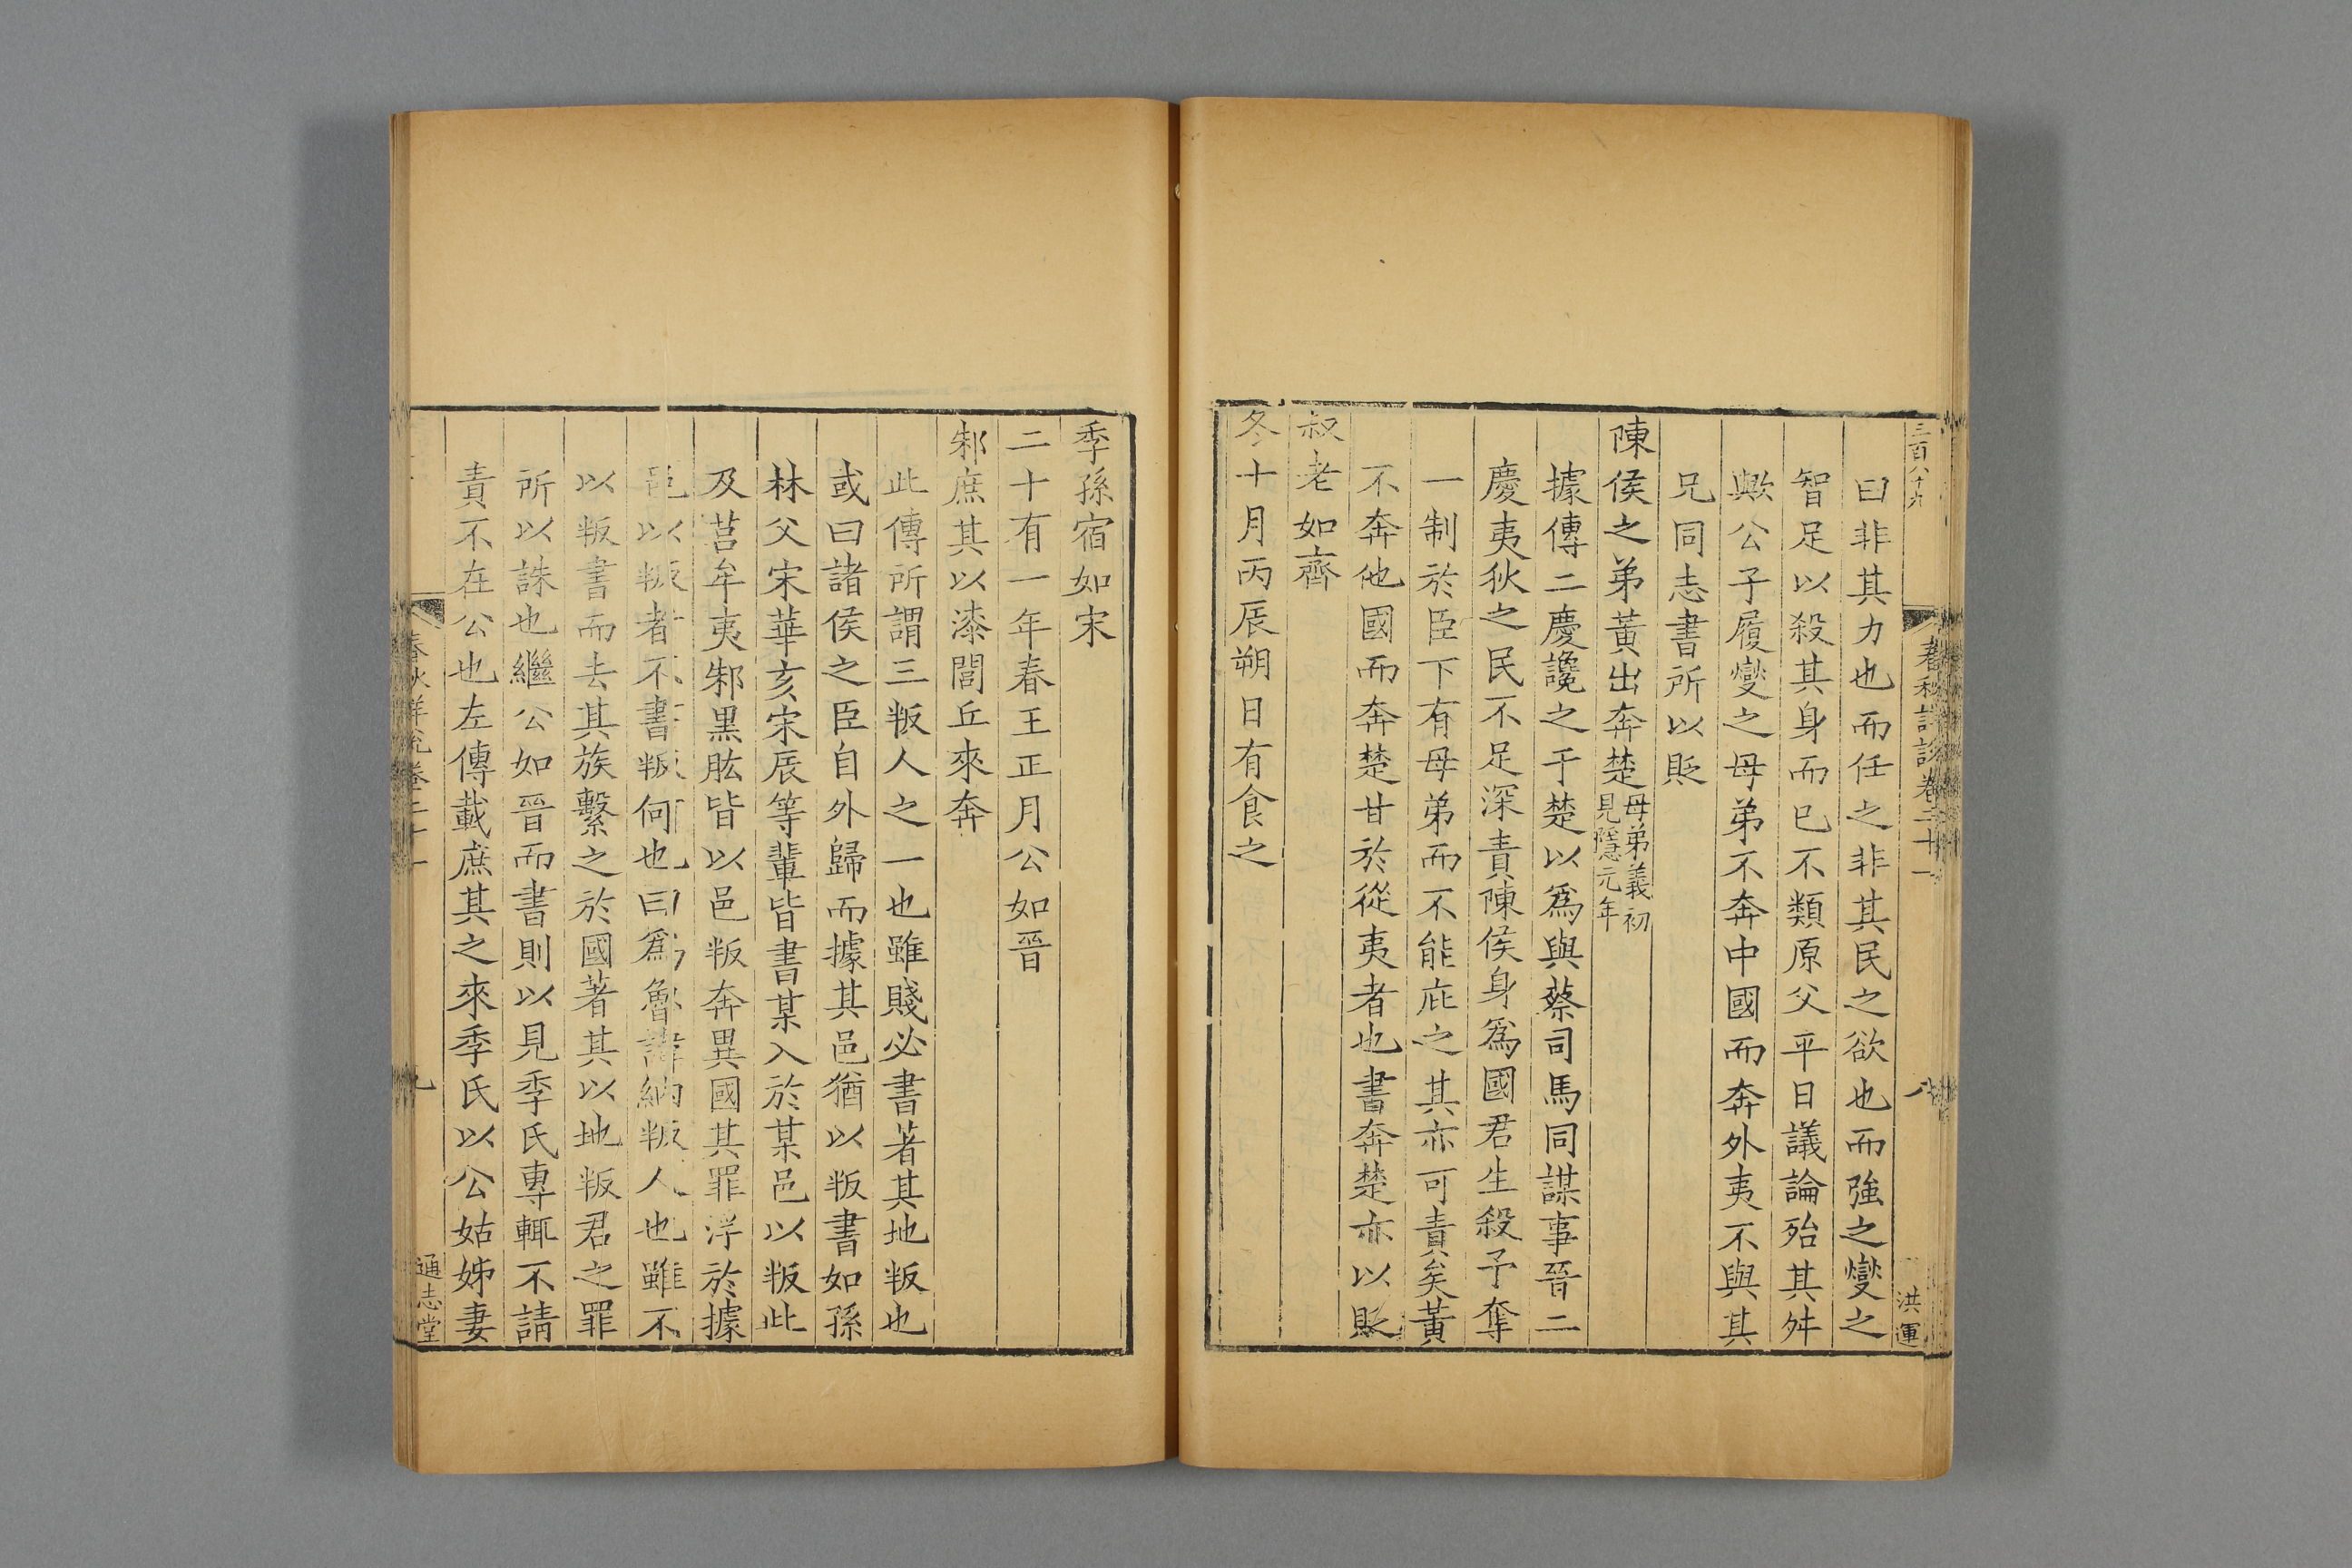 三百八十九
春秋詳說卷二十一
八
洪運
曰非其力也而任之非其民之欲也而强之燮之
智足以殺其身而已不類原父平日議論殆其舛
歟公子履燮之母弟不奔中國而奔外夷不與其
兄同志書所以貶
陳侯之弟黃出奔楚母弟義初見隱元年
據傳二慶讒之于楚以爲與蔡司馬同謀事晉二
慶夷狄之民不足深責陳侯身爲國君生殺予奪
一制於臣下有母弟而不能庇之其亦可責矣黃
不奔他國而奔楚甘於從夷者也書奔楚亦以貶
叔老如齊
冬十月丙辰朔日有食之
季孫宿如宋
二十有一年春王正月公如晉
邾庶其以漆閭丘來奔
此傳所謂三叛人之一也雖賤必書著其地叛也
或曰諸侯之臣自外歸而據其邑猶以叛書如孫
林父宋華亥宋辰等輩皆書某入於某邑以叛此
及莒牟夷邾黑肱皆以邑叛奔異國其罪浮於據
邑以叛者不書叛何也曰爲魯諱納叛人也雖不
以叛書而去其族繫之於國著其以地叛君之罪
所以誅也繼公如晉而書則以見季氏專輒不請
責不在公也左傳載庶其之來季氏以公姑姊妻
春秋詳說卷二十一
九
通志堂